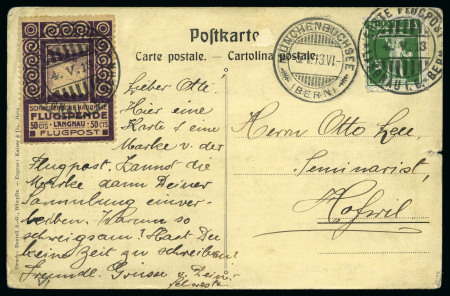 Postkarte
Carte postale. — Cartolina postale.
4.V.13
SCHWEIZERISCHE NATIONALE
FLUGSPENDE
50 CTS - LANGNAU - 50 CTS
FLUGPOST
MÜNCHENBUCHSEE
(BERN)
FLUGPOST
BERN
Lieber Otti.
Hier eine
Karte & eine
Marke v. der
Flugpost. Kannst die
Marke dann Deiner
Sammlung einver-
leiben. Warum so
schweigsam? Hast Du
keine Zeit zu schreiben?
Freundl. Grüsse v. Deiner
Schwester
Herrn Otto
Seminarist,
Hofwil